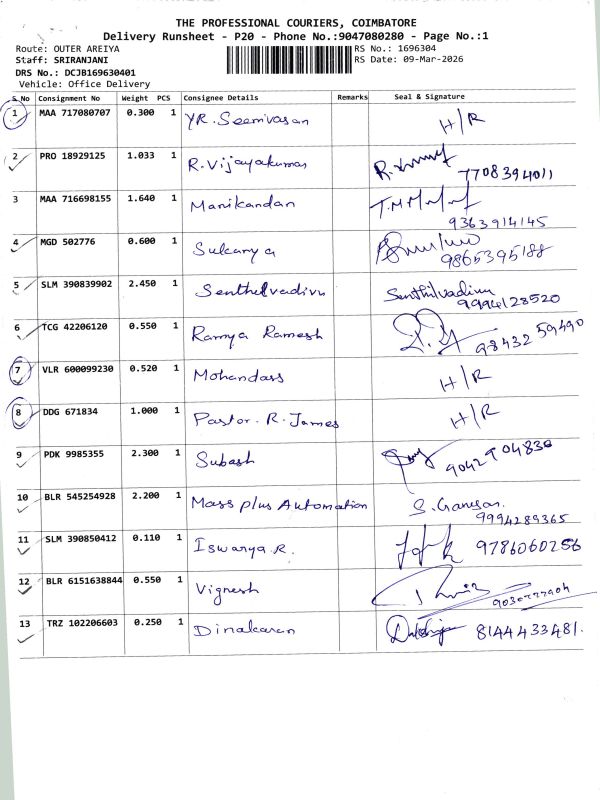 THE PROFESSIONAL COURIERS, COIMBATORE
Delivery Runsheet - P20 - Phone No.:9047080280 - Page No.:1
Route: OUTER AREIYA RS No.: 1696304
Staff: SRIRANJANI RS Date: 09-Mar-2026
DRS No.: DCJB169630401
Vehicle: Office Delivery
S No Consignment No Weight PCS Consignee Details Remarks Seal & Signature
1 MAA 717080707 0.300 1 YR. Seenivasan H/R
2 PRO 18929125 1.033 1 R. Vijayakumar 7708394011
3 MAA 716698155 1.640 1 Manikandan 9363914145
4 MGD 502776 0.600 1 Sukanya 9865395188
5 SLM 390839902 2.450 1 Senthilvadivu Senthilvadivu 9994128520
6 TCG 42206120 0.550 1 Ramya Ramesh 98432 59490
7 VLR 600099230 0.520 1 Mohandass H/R
8 DDG 671834 1.000 1 Pastor. R. James H/R
9 PDK 9985355 2.300 1 Subash 9042904830
10 BLR 545254928 2.200 1 Mass plus Automation S. Ganesan. 9994289365
11 SLM 390850412 0.110 1 Iswarya R. 9786060256
12 BLR 6151638844 0.550 1 Vignesh
13 TRZ 102206603 0.250 1 Dinakaran 8144433481.